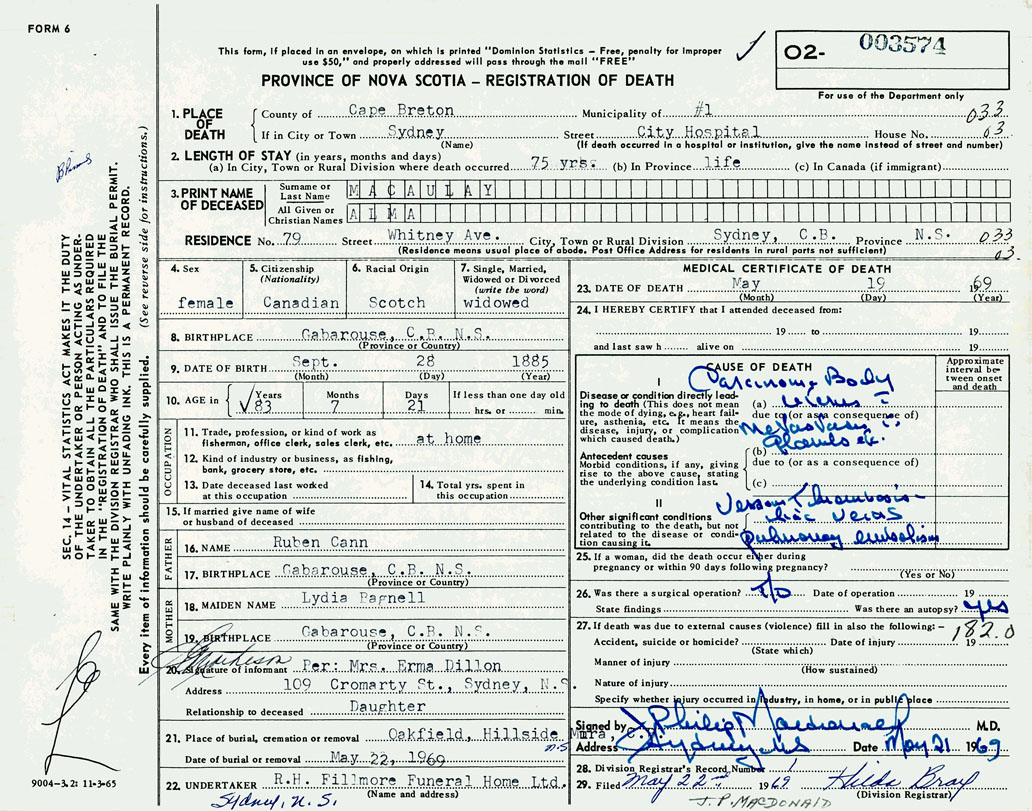 FORM 6
This form, if placed in an envelope, on which is printed "Dominion Statistics – Free, penalty for improper
use $50," and properly addressed will pass through the mail "FREE"
PROVINCE OF NOVA SCOTIA – REGISTRATION OF DEATH
O2- 003574
For use of the Department only
1. PLACE OF DEATH County of Cape Breton Municipality of #1 033
If in City or Town Sydney Street City Hospital House No. 03
(Name) (If death occurred in a hospital or institution, give the name instead of street and number)
2. LENGTH OF STAY (in years, months and days)
(a) In City, Town or Rural Division where death occurred 75 yrs. (b) In Province life (c) In Canada (if immigrant)
3. PRINT NAME OF DECEASED Surname or Last Name MACAULAY
All Given or Christian Names ALMA
RESIDENCE No. 79 Street Whitney Ave. City, Town or Rural Division Sydney, C.B. Province N.S. 033
(Residence means usual place of abode. Post Office Address for residents in rural parts not sufficient) 03.
4. Sex female
5. Citizenship (Nationality) Canadian
6. Racial Origin Scotch
7. Single, Married, Widowed or Divorced (write the word) widowed
8. BIRTHPLACE Gabarouse, C.B. N.S.
(Province or Country)
9. DATE OF BIRTH Sept. 28 1885
(Month) (Day) (Year)
10. AGE in Years 83 Months 7 Days 21 If less than one day old hrs. or min.
OCCUPATION
11. Trade, profession, or kind of work as fisherman, office clerk, sales clerk, etc. at home
12. Kind of industry or business, as fishing, bank, grocery store, etc.
13. Date deceased last worked at this occupation
14. Total yrs. spent in this occupation
15. If married give name of wife or husband of deceased
FATHER
16. NAME Ruben Cann
17. BIRTHPLACE Gabarouse, C.B. N.S.
(Province or Country)
MOTHER
18. MAIDEN NAME Lydia Bagnell
19. BIRTHPLACE Gabarouse, C.B. N.S.
(Province or Country)
20. Signature of informant Per: Mrs. Erma Dillon
Address 109 Cromarty St., Sydney, N.S.
Relationship to deceased Daughter
21. Place of burial, cremation or removal Oakfield, Hillside Mira, C.B.
N.S.
Date of burial or removal May 22, 1969
22. UNDERTAKER R.H. Fillmore Funeral Home Ltd.
(Name and address)
Sydney, N.S.
MEDICAL CERTIFICATE OF DEATH
23. DATE OF DEATH May 19 1969
(Month) (Day) (Year)
24. I HEREBY CERTIFY that I attended deceased from:
19 to 19
and last saw h alive on 19
CAUSE OF DEATH
Approximate interval between onset and death
I
Disease or condition directly leading to death (This does not mean the mode of dying, e.g., heart failure, asthenia, etc. It means the disease, injury, or complication which caused death.)
Carcinoma Body
(a) uterus
due to (or as a consequence of)
Metastasis
glands etc.
Antecedent causes
Morbid conditions, if any, giving rise to the above cause, stating the underlying condition last.
(b)
due to (or as a consequence of)
(c)
II
Other significant conditions contributing to the death, but not related to the disease or condition causing it.
Venous Thrombosis
iliac veins
pulmonary embolism
25. If a woman, did the death occur either during pregnancy or within 90 days following pregnancy?
(Yes or No)
26. Was there a surgical operation? no Date of operation 19
State findings Was there an autopsy? yes
27. If death was due to external causes (violence) fill in also the following: – 182.0
Accident, suicide or homicide? Date of injury 19
(State which)
Manner of injury
(How sustained)
Nature of injury
Specify whether injury occurred in industry, in home, or in public place
Signed by J. Philip Macdonald M.D.
Address Sydney NS Date May 21 1969
28. Division Registrar's Record Number
29. Filed May 22nd 1969 Hilda Bray
(Division Registrar)
J. P. MACDONALD
SEC. 14 – VITAL STATISTICS ACT MAKES IT THE DUTY
OF THE UNDERTAKER OR PERSON ACTING AS UNDER-
TAKER TO OBTAIN ALL THE PARTICULARS REQUIRED
IN THE "REGISTRATION OF DEATH" AND TO FILE THE
SAME WITH THE DIVISION REGISTRAR WHO SHALL ISSUE THE BURIAL PERMIT.
WRITE PLAINLY WITH UNFADING INK. THIS IS A PERMANENT RECORD.
Every item of information should be carefully supplied. (See reverse side for instructions.)
9004–3.2: 11-3-65